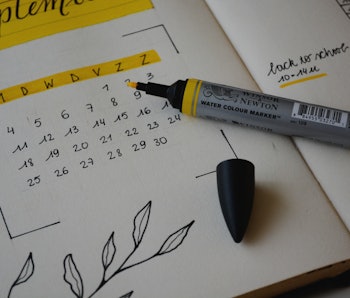 ptember
D W D V Z Z
1 2 3
4 5 6 7 8 9
11 12 13 14 15 16 17
18 19 20 21 22 23 24
25 26 27 28 29 30
back to school
10-14u
WINSOR
& NEWTON
WATER COLOUR MARKER™